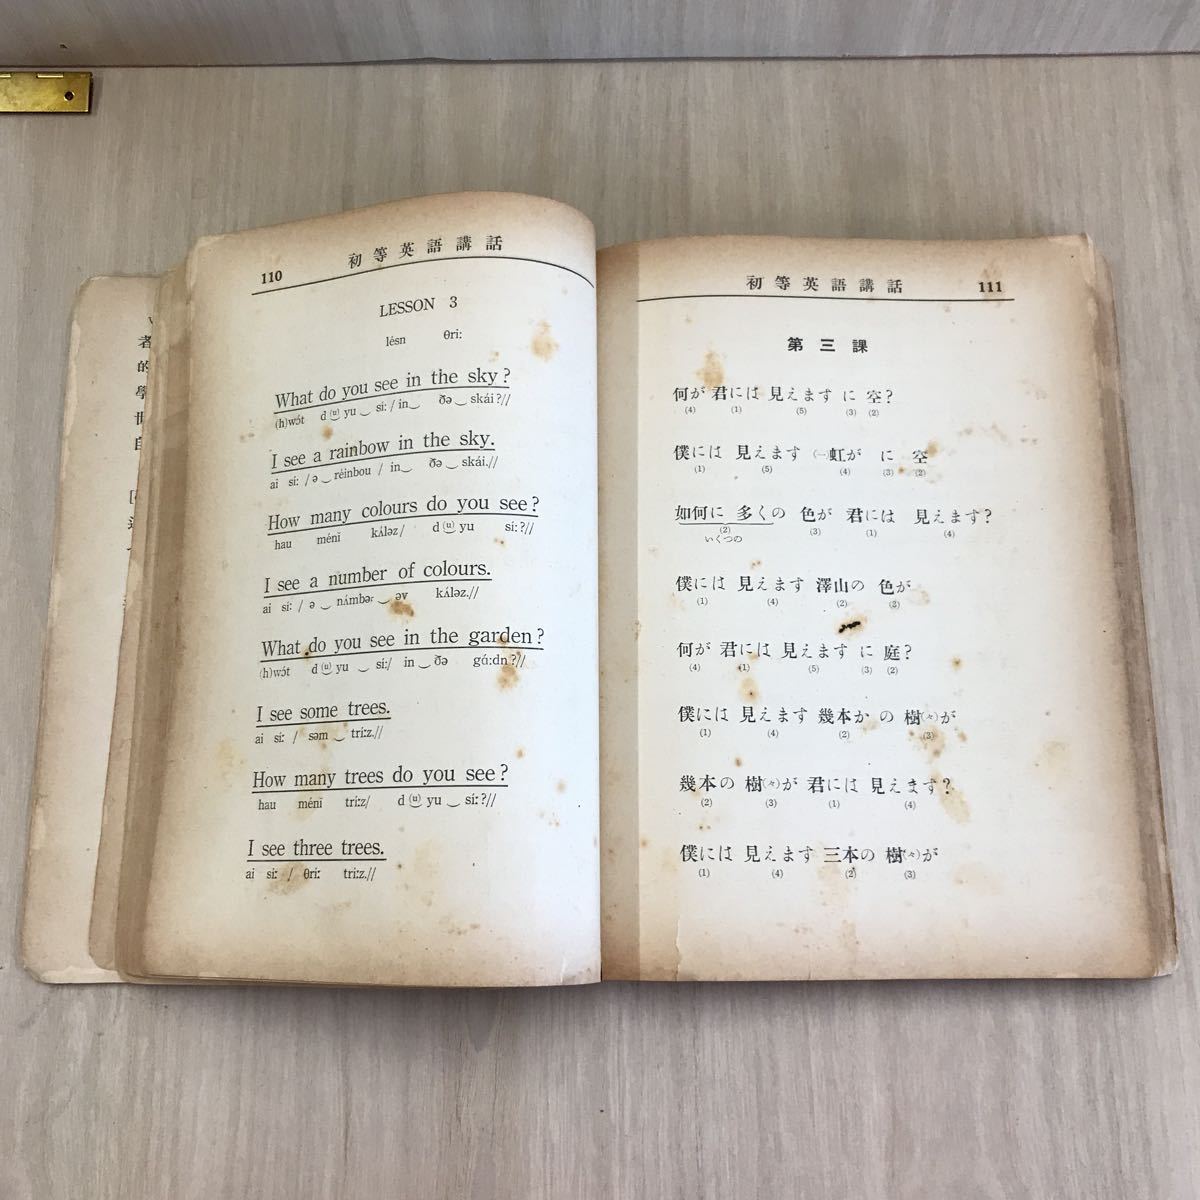 110 初等英語講話
LESSON 3
lésn θriː
What do you see in the sky?
(h)wɔ́t d(u)yu‿síː/in‿ ðə‿skái?//
I see a rainbow in the sky.
ai síː/ə‿réinbou/in‿ ðə‿skái.//
How many colours do you see?
hau méni kʌ́ləz/ d(u)yu síː?//
I see a number of colours.
ai síː/ə‿nʌ́mbər‿əv kʌ́ləz.//
What do you see in the garden?
(h)wɔ́t d(u)yu‿síː/in‿ðə gɑ́ːdn?//
I see some trees.
ai síː/ səm‿tríːz.//
How many trees do you see?
hau méni tríːz/ d(u)yu‿síː?//
I see three trees.
ai síː/ θríː tríːz.//
初等英語講話 111
第三課
何が 君には 見えます に 空?
(4) (1) (5) (3) (2)
僕には 見えます (一)虹が に 空
(1) (5) (4) (3) (2)
如何に 多くの 色が 君には 見えます?
(2) (3) (1) (4)
いくつの
僕には 見えます 澤山の 色が
(1) (4) (2) (3)
何が 君には 見えます に 庭?
(4) (1) (5) (3) (2)
僕には 見えます 幾本か の 樹(々)が
(1) (4) (2) (3)
幾本の 樹(々)が 君には 見えます?
(2) (3) (1) (4)
僕には 見えます 三本の 樹(々)が
(1) (4) (2) (3)
者的學
自